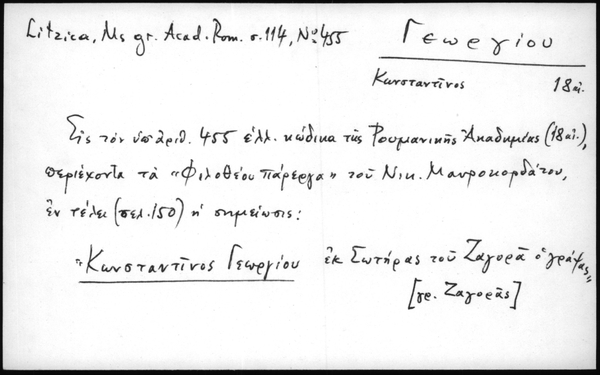 Litzica, Ms gr. Acad. Rom. σ. 114, No 455
Γεωργίου
Κωνσταντῖνος 18 αἰ.
Εἰς τὸν ὑπ' ἀριθ. 455 ἑλλ. κώδικα τῆς Ρουμανικῆς Ἀκαδημίας (18 αἰ.),
περιέχοντα τὰ «Φιλοθέου πάρεργα» τοῦ Νικ. Μαυροκορδάτου,
ἐν τέλει (σελ. 150) ἡ σημείωσις:
"Κωνσταντῖνος Γεωργίου ἐκ Σωτήρας τοῦ Ζαγορᾶ ὁ γράψας"
[γρ. Ζαγορᾶς]